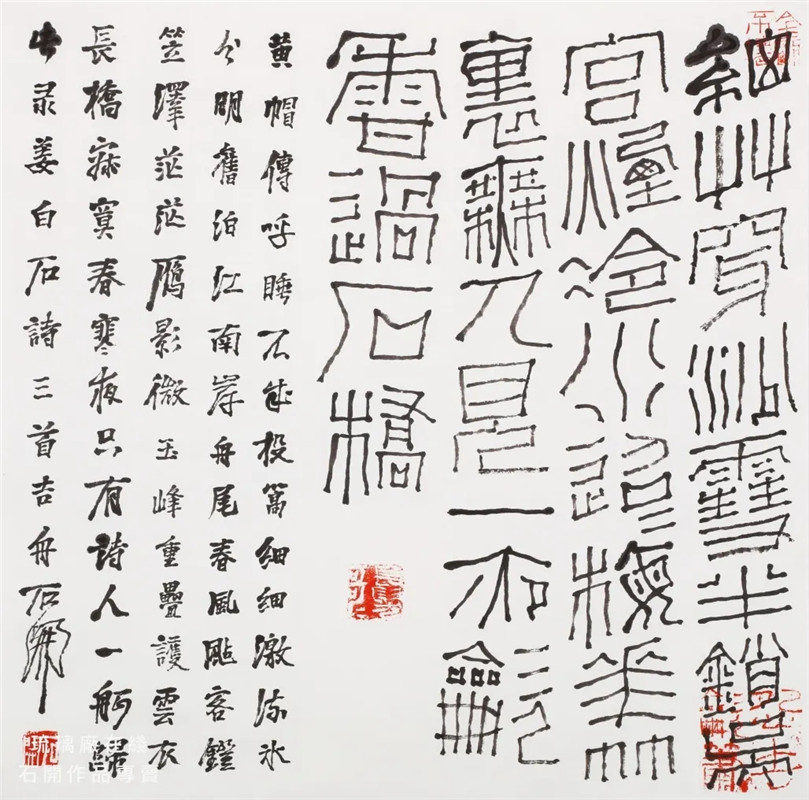 細艸穿沙雪半銷吳
宮煙冷水迢〻梅花竹
裏無人見一夜龡
香過石橋
黃帽傳呼睡不成投篙細細激流冰
分明舊泊江南岸舟尾春風颭客鐙
笠澤茫茫鴈影微玉峰重疊護雲衣
長橋寂寞春寒夜只有詩人一舸歸
录姜白石詩三首吉舟石開
琉璃廠在綫
石開作品專賣